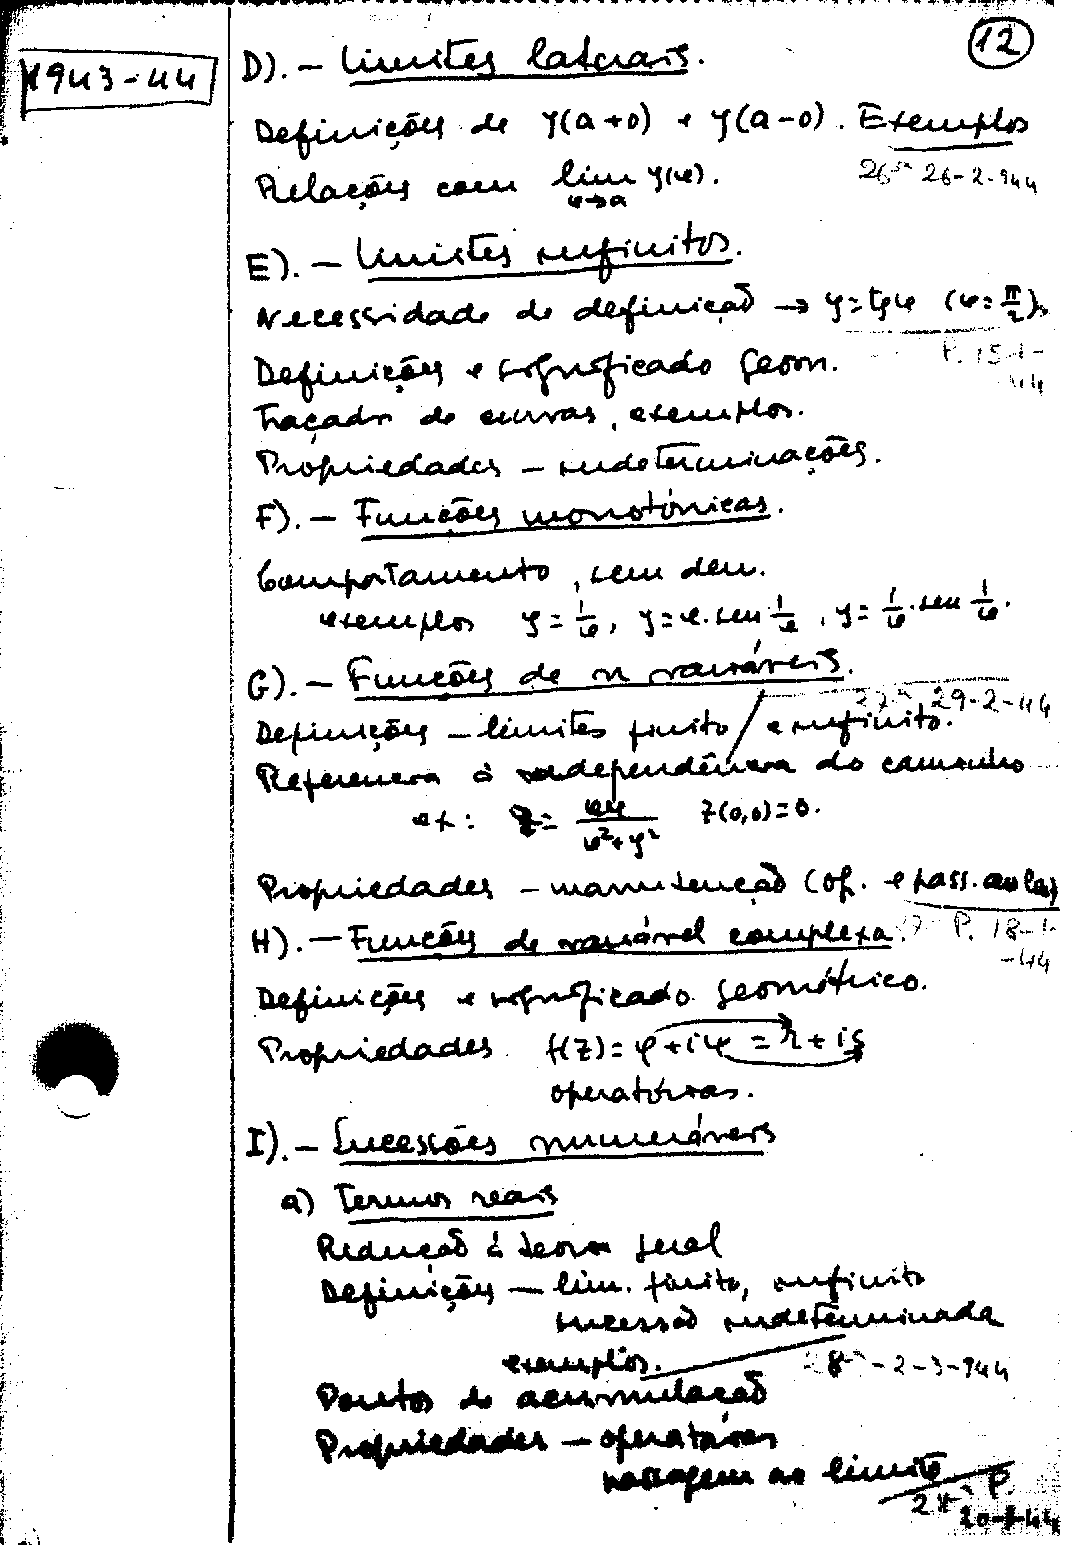 12
1943-44
D). – Limites laterais.
Definições de y(a+0) e y(a-0). Exemplos
26ª 26-2-944
Relações com lim y(x).
x→a
E). – Limites infinitos.
Necessidade de definição → y = tg x (x = π/2).
P. 15-1-44
Definições e significado geom.
Traçado de curvas, exemplos.
Propriedades – indeterminações.
F). – Funções monotónicas.
Comportamento, sem dem.
exemplos y = 1/x, y = x.sen 1/x, y = 1/x.sen 1/x.
G). – Funções de n variáveis.
27ª 29-2-44
Definições – limites finito / e infinito.
Referencia á independência do caminho
ex: z = xy/(x²+y²) z(0,0)=0.
Propriedades – manutenção (op. e pass. ao lim)
P. 18-1-44
H). – Funções de variável complexa.
Definições e significado geométrico.
Propriedades f(z) = φ+iψ = r+is
operatórias.
I). – Sucessões numeráveis
a) Termos reais
Redução á teoria geral
Definições – lim. finito, infinito
sucessão indeterminada
exemplos.
28ª - 2-3-944
Pontos de acumulação
Propriedades – operatórias
passagem ao limite
P.
20-1-44